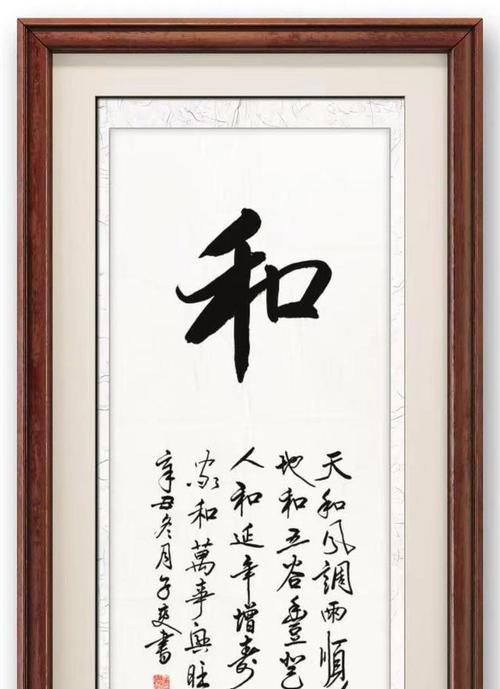 和
天和風調雨順
地和五谷豊登
人和延年增壽
家和萬事興旺
辛丑冬月子爽書